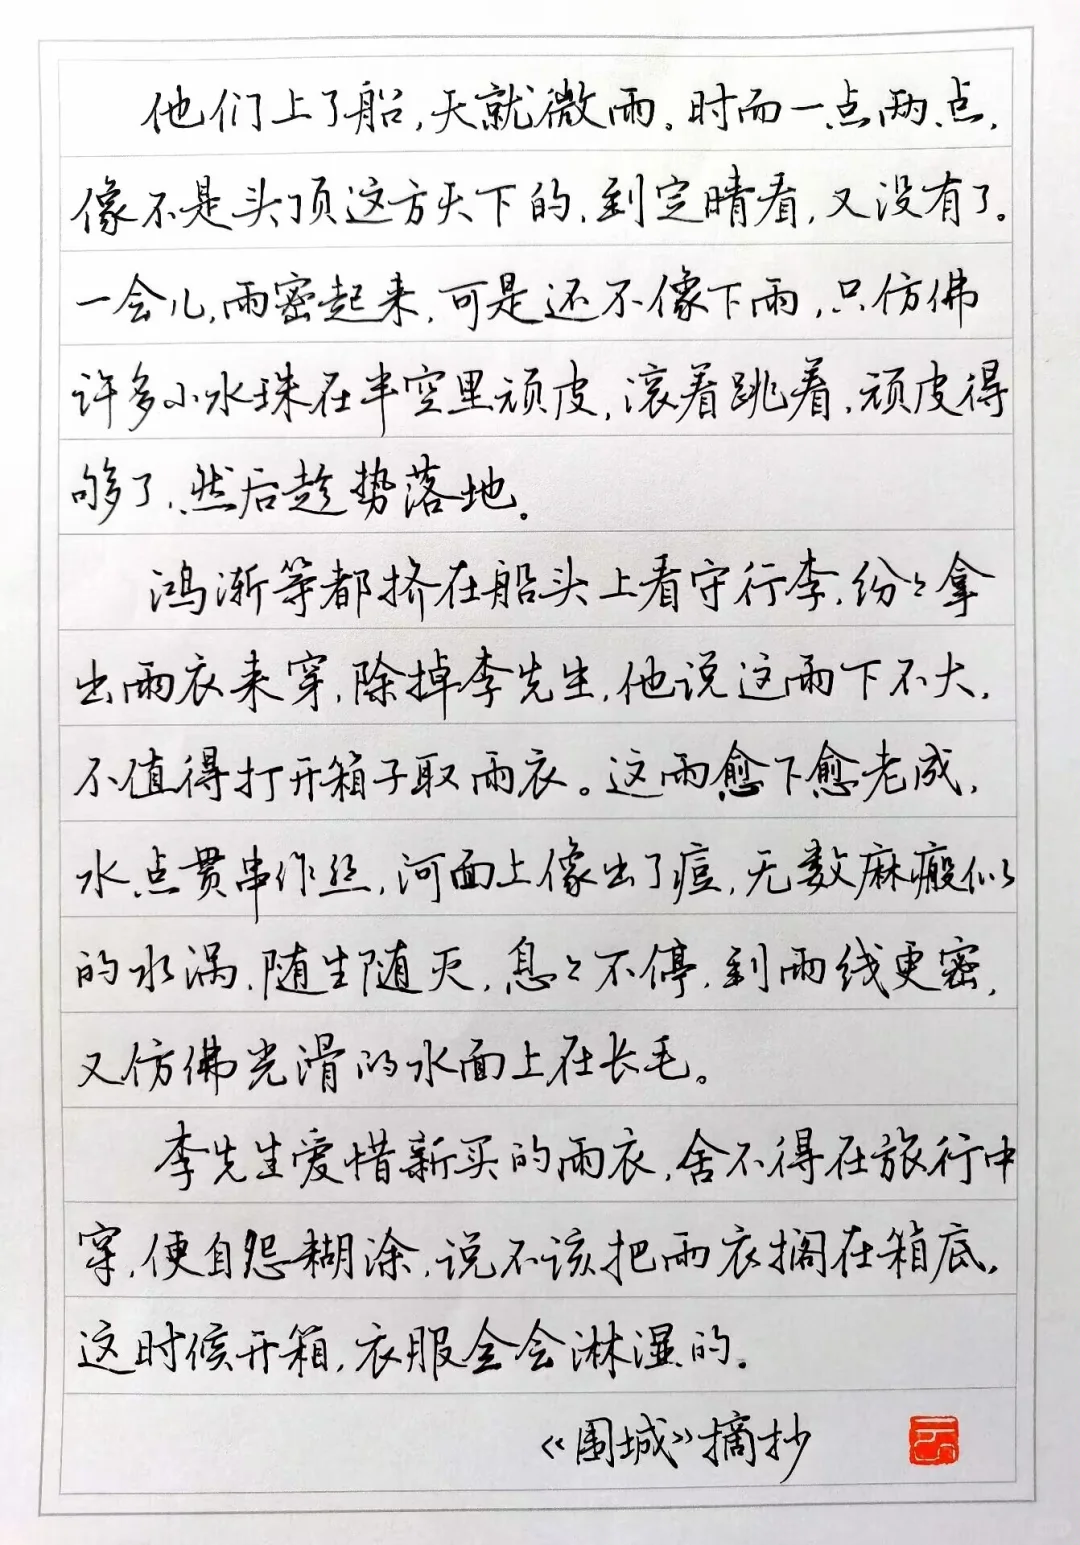 他们上了船，天就微雨。时而一点两点，
像不是头顶这方天下的，到定晴看，又没有了。
一会儿，雨密起来，可是还不像下雨，只仿佛
许多小水珠在半空里顽皮，滚着跳着，顽皮得
够了，然后趁势落地。
鸿渐等都挤在船头上看守行李，纷々拿
出雨衣来穿，除掉李先生，他说这雨下不大，
不值得打开箱子取雨衣。这雨愈下愈老成，
水点贯串作丝，河面上像出了痘，无数麻瘢似
的水涡，随生随灭，息々不停，到雨线更密，
又仿佛光滑的水面上在长毛。
李先生爱惜新买的雨衣，舍不得在旅行中
穿，便自怨糊涂，说不该把雨衣搁在箱底，
这时候开箱，衣服全会淋湿的。
《围城》摘抄
云